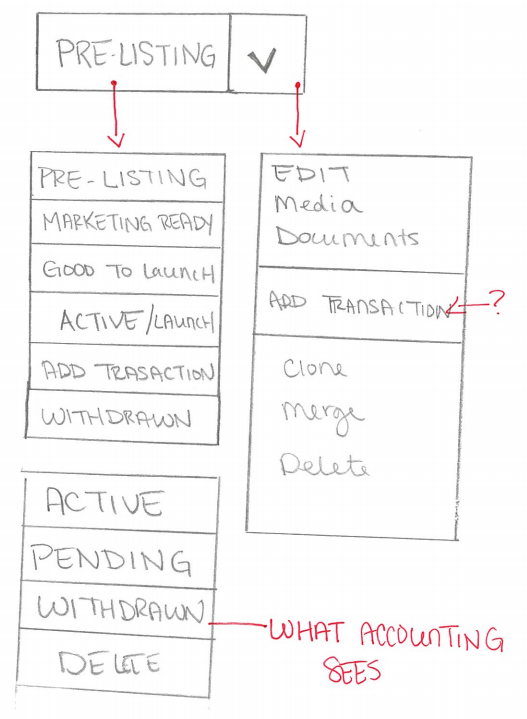 PRE-LISTING
PRE-LISTING
MARKETING READY
GOOD TO LAUNCH
ACTIVE/LAUNCH
ADD TRASACTION
WITHDRAWN
EDIT
Media
Documents
ADD TRANSACTION
?
Clone
Merge
Delete
ACTIVE
PENDING
WITHDRAWN
DELETE
WHAT ACCOUNTING
SEES